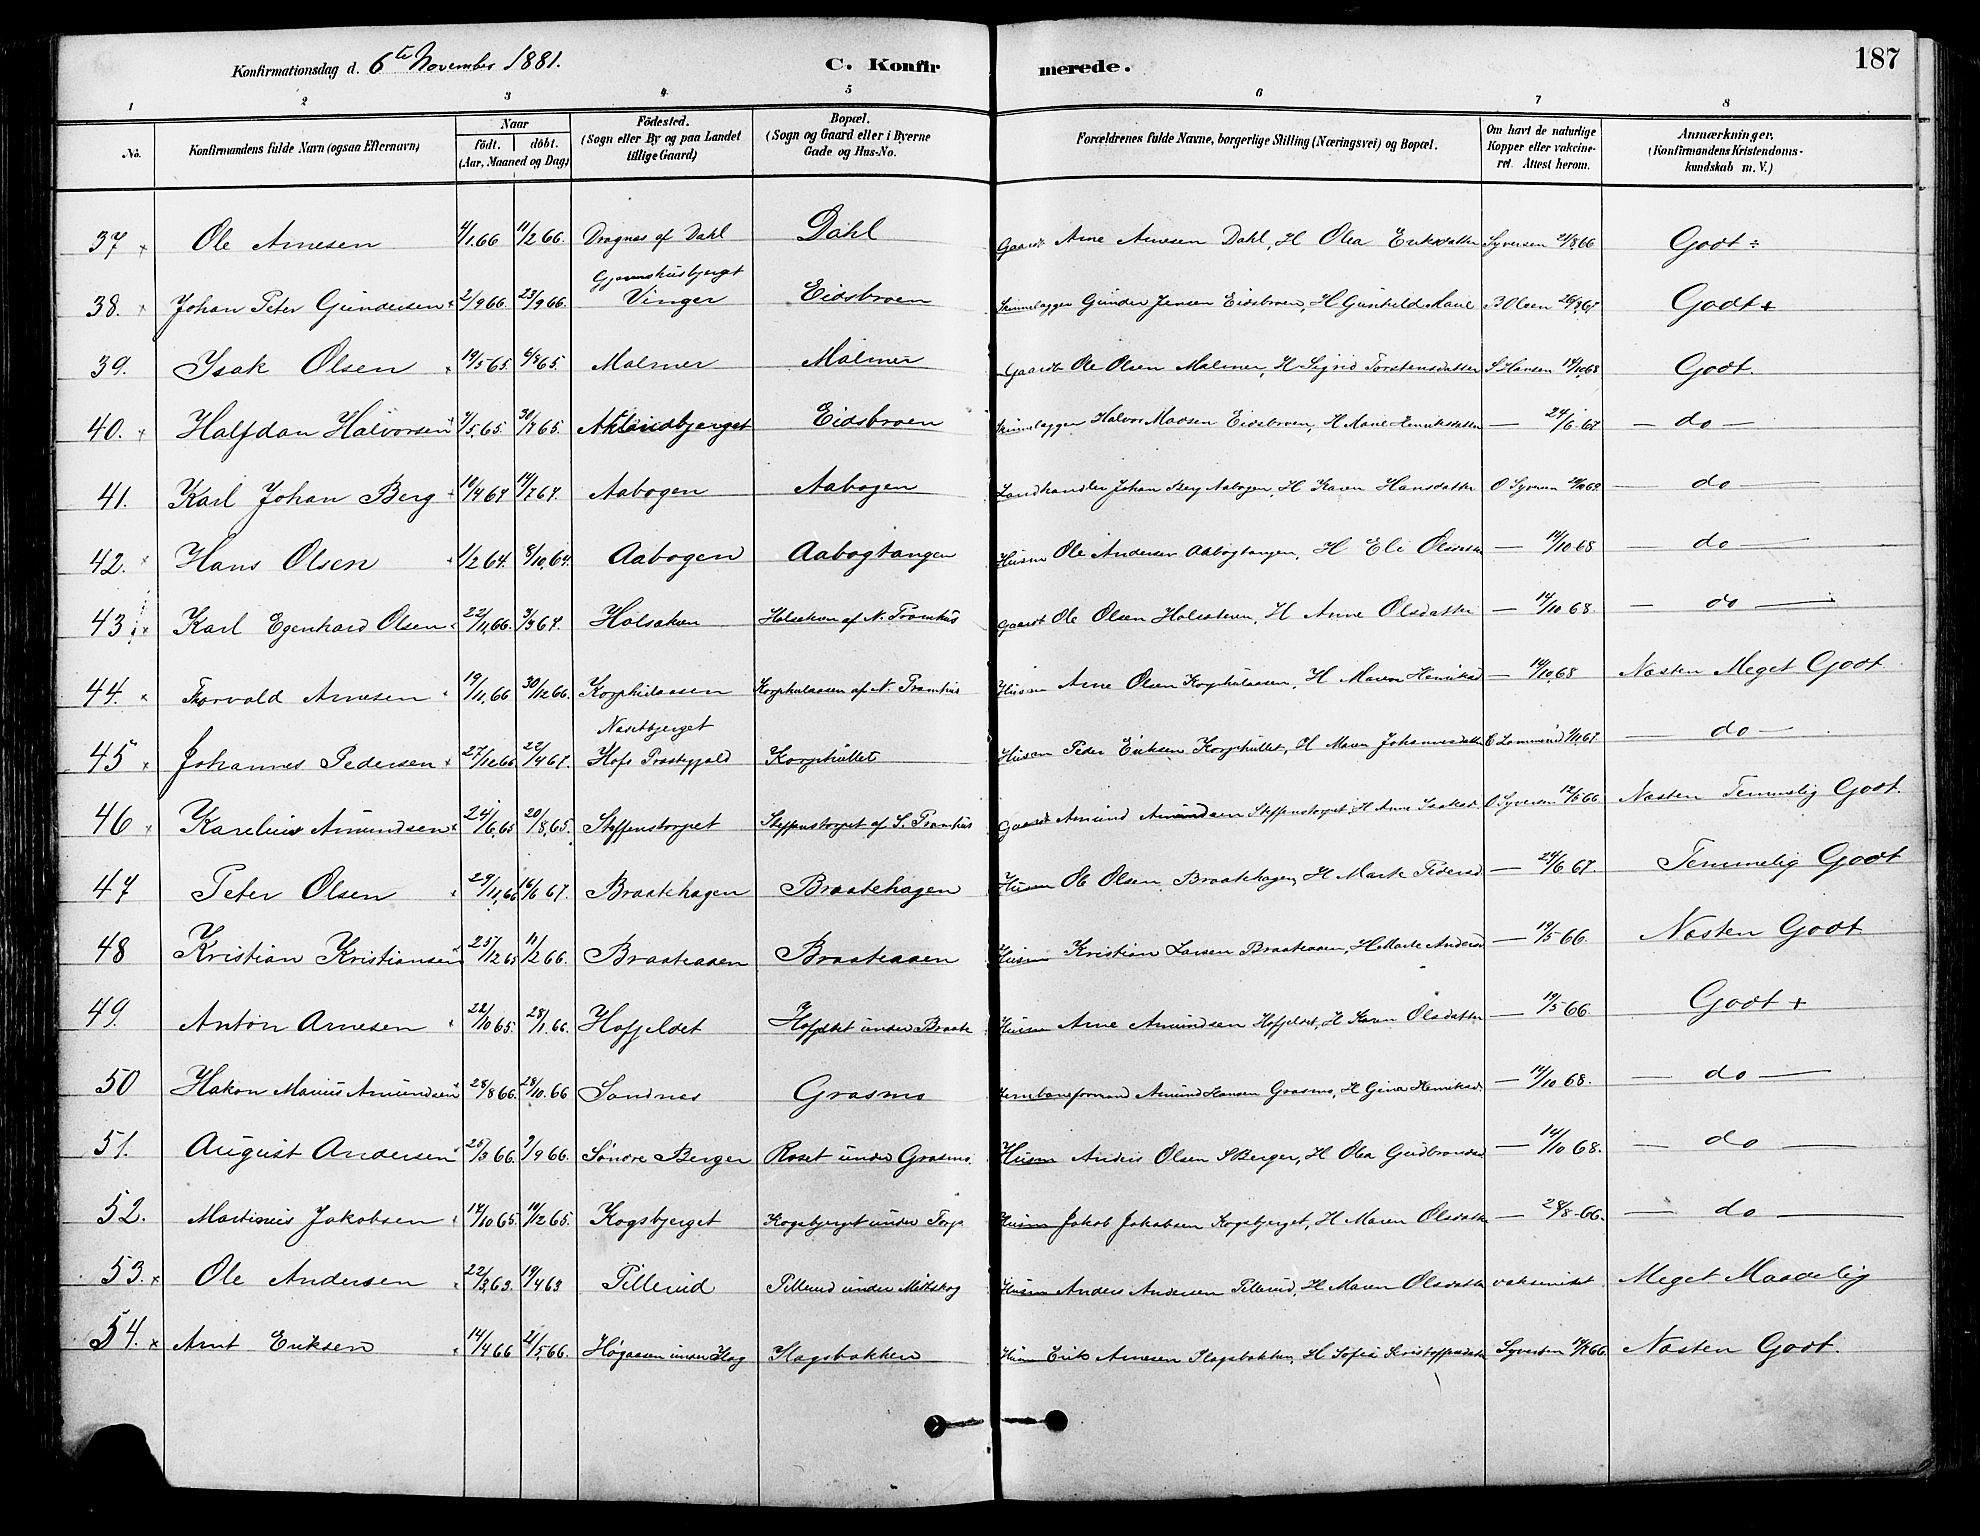 Konfirmationsdag d. 6te November 1881. C. Konfirmerede. 187
1 2 3 4 5 6 7 8
No. Konfirmandens fulde Navn (ogsaa Efternavn) Naar födt. döbt. (Aar, Maaned og Dag) Födested. (Sogn eller By og paa Landet tillige Gaard) Bopæl. (Sogn og Gaard eller i Byerne Gade og Hus-No. Forældrenes fulde Navne, borgerlige Stilling (Næringsvei) og Bopæl. Om havt de naturlige Kopper eller vakcineret. Attest herom. Anmærkninger. (Konfirmandens Kristendomskundskab m. V.)
37 Ole Arnesen 4/1 66 11/2 66. Dragnes af Dahl Dahl Gaardr Arne Arnesen Dahl, H Olea Eriksdatter Syversen 21/8 66 Godt ÷
38. Johan Peter Gundersen 2/9 66. 23/9 66. Vinger Eidsbroen Gunder Jensen Eidsbroen, H Gunhild Marie B Olsen 26/8 67 Godt +
39. Isak Olsen 19/5 65. 6/8 65. Malmer Malmer Gaardr Ole Olsen Malmer, H Sigrid Torstensdatter S Hansen 14/10 68 Godt.
40. Halfdan Halvorsen 7/5 65. 30/7 65. Eidsbroen Halvor Madsen Eidsbroen, H Marie Henriksdatter — 24/6 67 — do —
41. Karl Johan Berg 10/4 67. 14/7 67. Aabogen Aabogen Landhandler Johan Berg Aabogen, H Karen Hansdatter O Syversen — do —
42. Hans Olsen 1/2 64. 8/10 64. Aabogen Aabogtangen Husm Ole Andersen Aabogtangen, H Eli Olsdatter — 14/10 68 — do —
43. Karl Egenhard Olsen 22/11 66. 3/3 67. Holsaken af N. Gaardr Ole Olsen H Anne Olsdatter — 14/10 68. — do —
44. Thorvald Arnesen 19/11 66 30/12 66. Korphulaasen Korphulaasen af N. Husm Arne Olsen Korphulaasen, H Maren Henriksd — 14/10 68 Næsten Meget Godt
45 Johannes Pedersen 27/12 66 22/4 67. Hofs Præstegjæld Korphullet Husm Peder Eriksen Korphullet, H Maren Johannesdatter — do —
46 Karelius Amundsen 24/6 65 20/8 65. Steffenstorpet Steffenstorpet af S. Gaardr Amund Amundsen Steffenstorpet H Anne Isaksd O Syversen 12/5 66 Næsten Temmelig Godt.
47 Peter Olsen 29/11 66 16/6 67. Braatehagen Braatehagen Husm Ole Olsen Braatehagen, H Marte Pedersd — 24/6 67. Temmelig Godt
48 Kristian Kristiansen 25/12 65 11/2 66. Braateaasen Braateaasen Husm Kristian Larsen Braateaasen, H Marte Andersd — 19/5 66. Næsten Godt
49. Anton Arnesen 22/10 65. 28/1 66. Hofjeldet Hofjeldet under Braate Husm Arne Amundsen Hofjeldet, H Karen Olsdatter — 19/5 66. Godt +
50 Hakon Marius Amundsen 28/8 66. 28/10 66 Sandnes Grasmo Jernbaneformand Amund Hansen Grasmo, H Gina Henriksd. — 14/10 68. — do —
51. August Andersen 25/3 66. 9/9 66. Søndre Berger Roset under Grasmo. Husm Anders Olsen S Berger, H Olea Gudbrandsd — 14/10 68. — do —
52. Martinius Jakobsen 14/10 65. 14/12 65. Kogsbjerget Kogsbjerget under Torp Husm Jakob Jakobsen Kogsbjerget, H Maren Olsdatter — 28/8 66. — do —
53. Ole Andersen 22/3 63. 19/4 63 Tillerud Tillerud under Midtskog Husm Anders Andersen Tillerud, H Maren Olsdatter vaksineret Meget Maadelig
54. Arnt Eriksen 14/4 66 21/5 66. Høgaasen under Slag Slagsbakken Husm Erik Arnesen Slagsbakken, H Sofie Kristoffersdatter Syversen Næsten Godt.